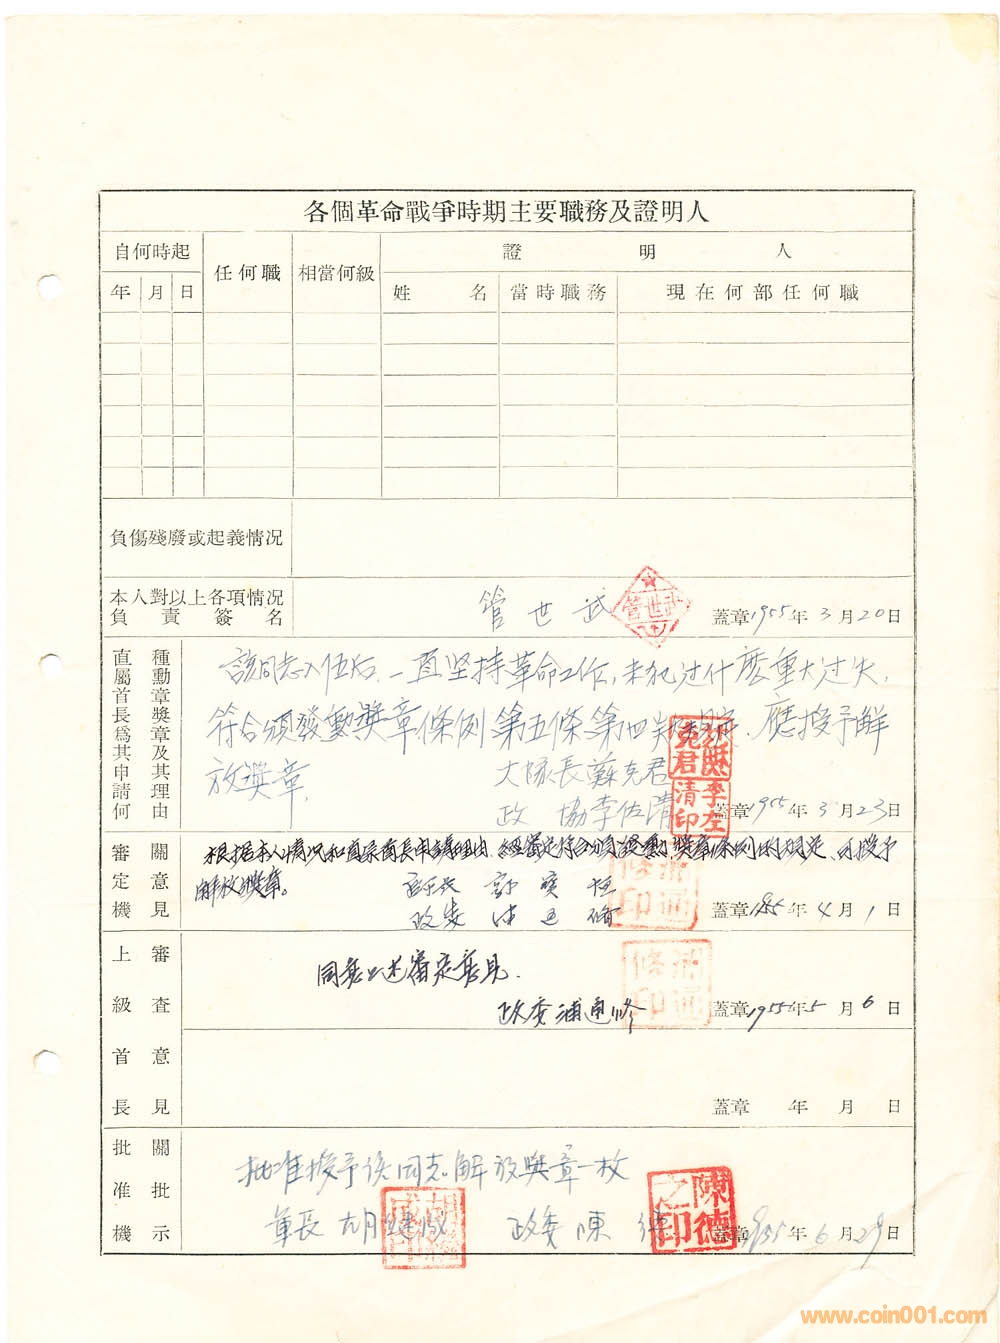 各個革命戰爭時期主要職務及證明人
自何時起 任何職 相當何級 證明人
年 月 日 姓名 當時職務 現在何部任何職
負傷殘廢或起義情況
本人對以上各項情況負責簽名 管世武 管世武 蓋章1955年3月20日
直屬首長為其申請何種勳章獎章及其理由
該同志入伍后,一直坚持革命工作,未犯过什麽重大过失,
符合頒發勳獎章條例第五條第四 規定.應授予解
放獎章.
大隊長蘇克君
政協李佐清 李左清印 蓋章1955年3月23日
審定機關意見
根据本人情况和直屬首長申請理由,經審定符合頒發勳獎章條例的規定,可授予
解放獎章。
政委 蓋章1955年4月1日
上級首長審查意見
同意上述審定意見.
政委浦通修 浦通修印 蓋章1955年5月6日
蓋章 年 月 日
批准機關批示
批准授予该同志解放奬章一枚
軍長胡继成 政委陳德 陳德之印 蓋章1955年6月29日
www.coin001.com